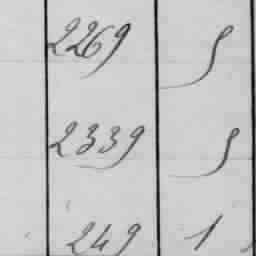 2269 S
2339 S
249 1